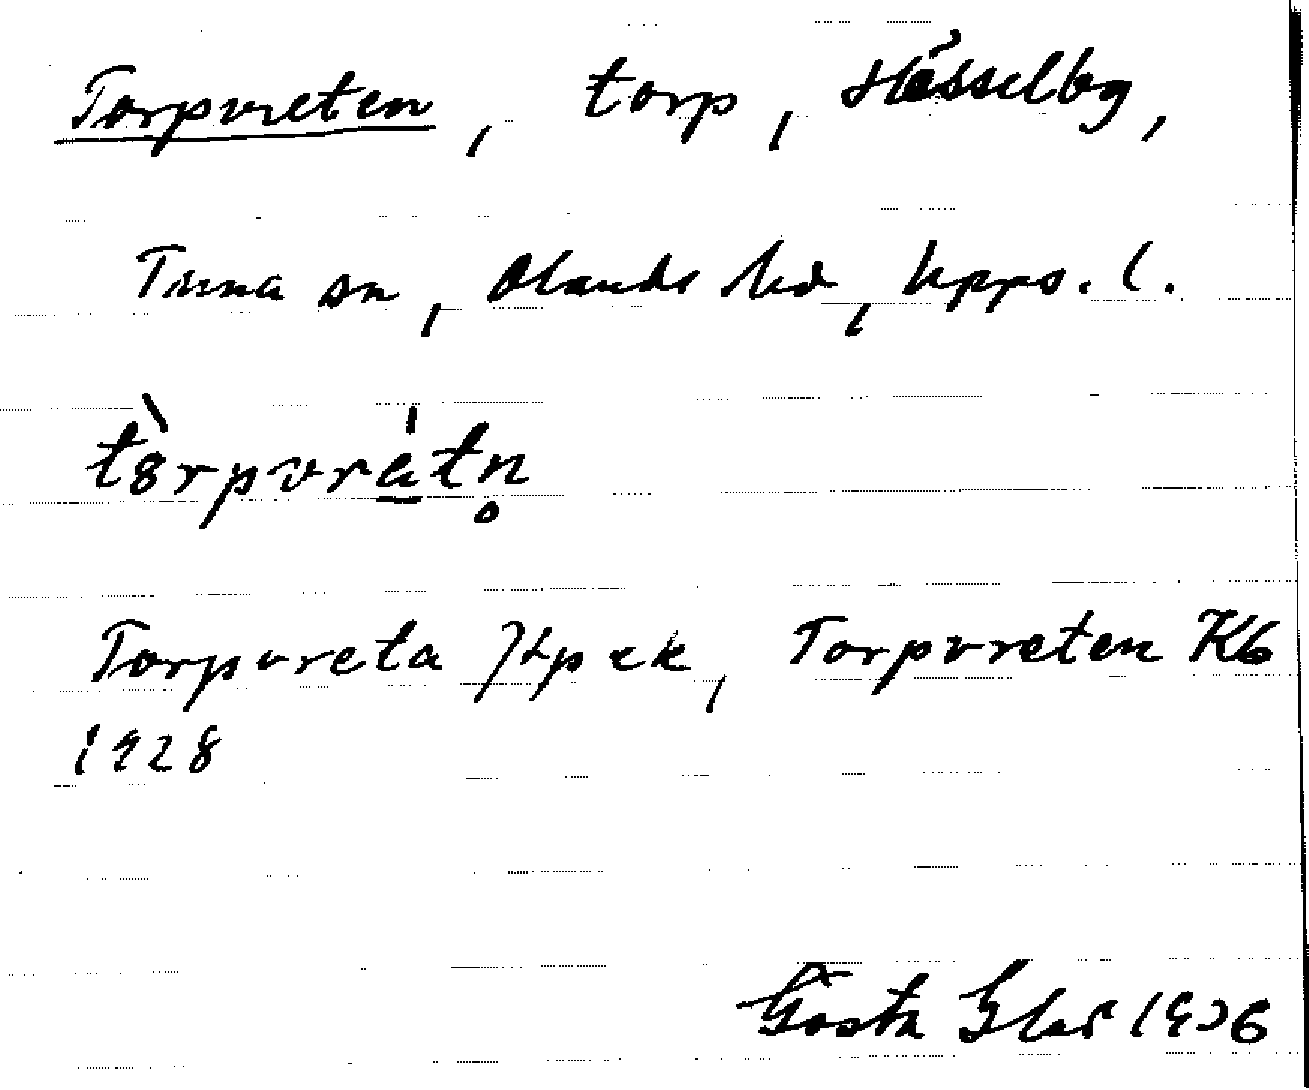 Torpvreten, torp, Hässelby,
Tuna sn, Olands hd, Upps. l.
tòrpvrátn̥
Torpvreta Jkpek, Torpvreten Kb
1928
Gösta 1936